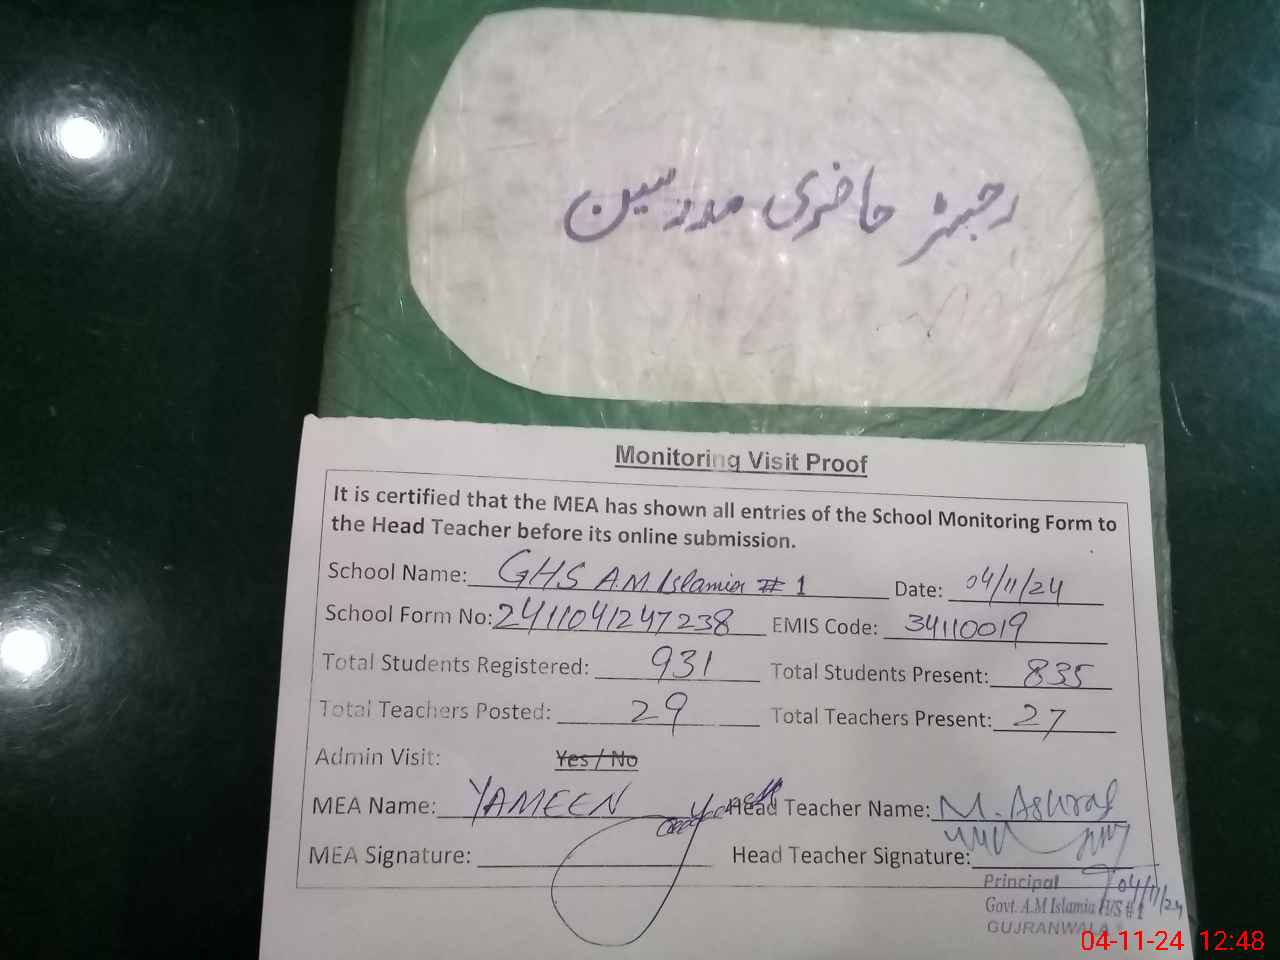 رجسٹر حاضری مدرسین
Monitoring Visit Proof
It is certified that the MEA has shown all entries of the School Monitoring Form to
the Head Teacher before its online submission.
School Name: GHS A.M. Islamia # 1 Date: 04/11/24
School Form No: 2411041247238 EMIS Code: 34110019
Total Students Registered: 931 Total Students Present: 835
Total Teachers Posted: 29 Total Teachers Present: 27
Admin Visit: Yes / No
MEA Name: YAMEEN Head Teacher Name: M. Ashraf
MEA Signature: Head Teacher Signature:
Principal 04/11/24
Govt. A.M Islamia H/S # 1
GUJRANWALA
04-11-24 12:48